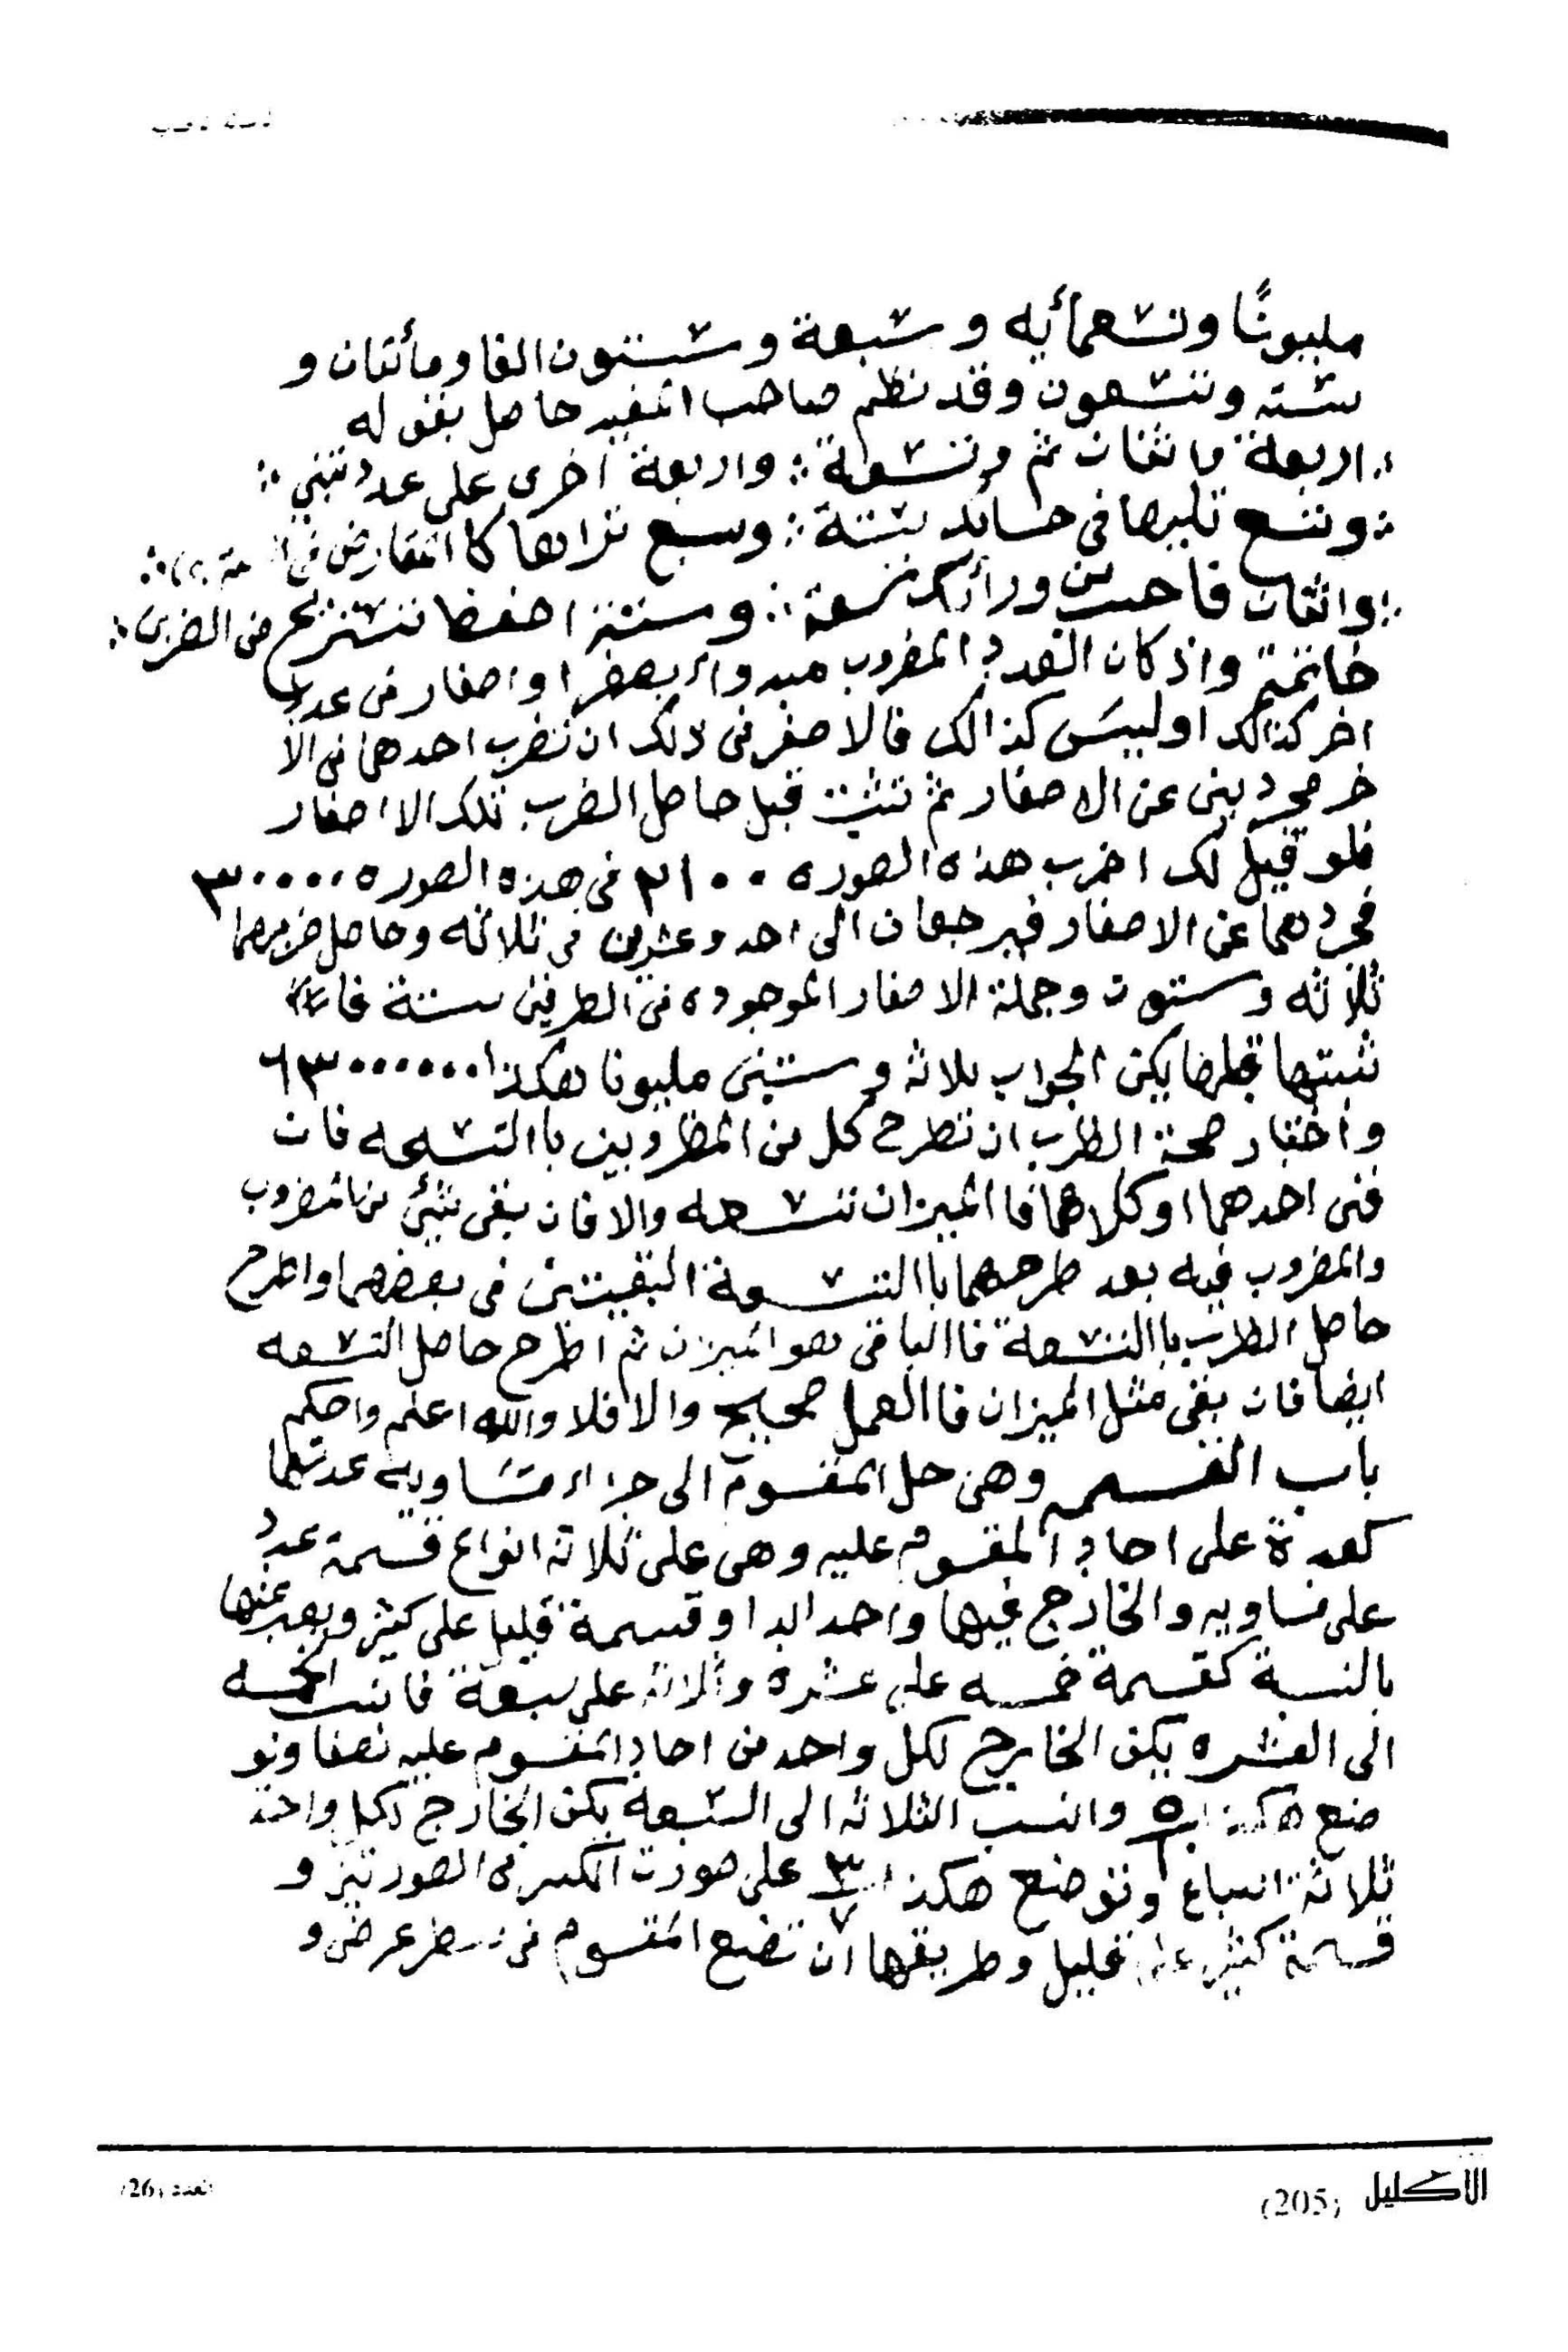 مليونًا وتسعمأيه و سبعة و ستون الفا ومأتان و
ستة وتسعون وقد نظم صاحب المفيد حاصل بقوله
اربعة واثنان ثم وتسعة ؞ واربعة اخرى على عدد تبني ؞
؞ وتسع تليها في حسابك ستة ؞ وسبع تراها كا المقارض في
؞ واثنان فاحسبن ورأك تسعة ؞ وستة احفظا تستريح من الضرب ؞
خاتمة واذ كان العدد المضروب مبدواء بصفر او اصفار في عدد
اخر كذالك او ليس كذالك فالاصغر في ذلك ان تضرب احدهما في الا
خر مجردين عن الاصفار ثم تثبت قبل حاصل الضرب تلك الااصفار
فلو قيل لك اضرب هذه الصوره ٢١٠٠ في هذه الصوره ٣٠٠٠٠
فجردهما عن الاصفار فيرجعان الى احد وعشرين في ثلاثه وحاصل ضربهما
ثلاثه وستون وجملة الاصفار الموجوده في الطرفين ستة فاء
ثبتها قبلها يكن الجواب ثلاثه وستين مليونا هكذا ٦٣٠٠٠٠٠٠
واختبار صحة الظرب ان تطرح كل من المظروبين باالتسعه فان
فنى احدهما او كلاهما فا الميزان تسعه والا فان بقى شئ من المضروب
والمضروب فيه بعد طرحهما باالتسعة البقيتين في بعضهما واطرح
حاصل الظرب باالتسعة فاالباقي هو الميزان ثم اطرح حاصل التسعه
ايضا فان بقى مثل الميزان فاالعمل صحيح والا فلا والله اعلم واحكم
باب القسمه وهي حل المقسوم الى جزاء متساويه عدتها
كعدة على احاد المقسوم عليه وهي على ثلاثه انواع قسمة عدد
على مساويه والخارج فيها واحد ابدا او قسمة قليل على كثير ويعبر عنها
بالنسبة كقسمة خمسه على عشره وثلاثه على سبعة فانسب الخمسه
الى العشره يكن الخارج لكل واحد من احاد المقسوم عليه نصفا وتو
ضع هكذا ٥/١٠ وانسب الثلاثه الى السبعة يكن الخارج لكل واحد
ثلاثة اسباع وتوضع هكذا ٣/٧ على صورت الكسر في الصورتين و
قسمة كثير على قليل وطريقها ان تضع المقسوم في سطر عرضي و
الأكليل (205)
العدد (26)